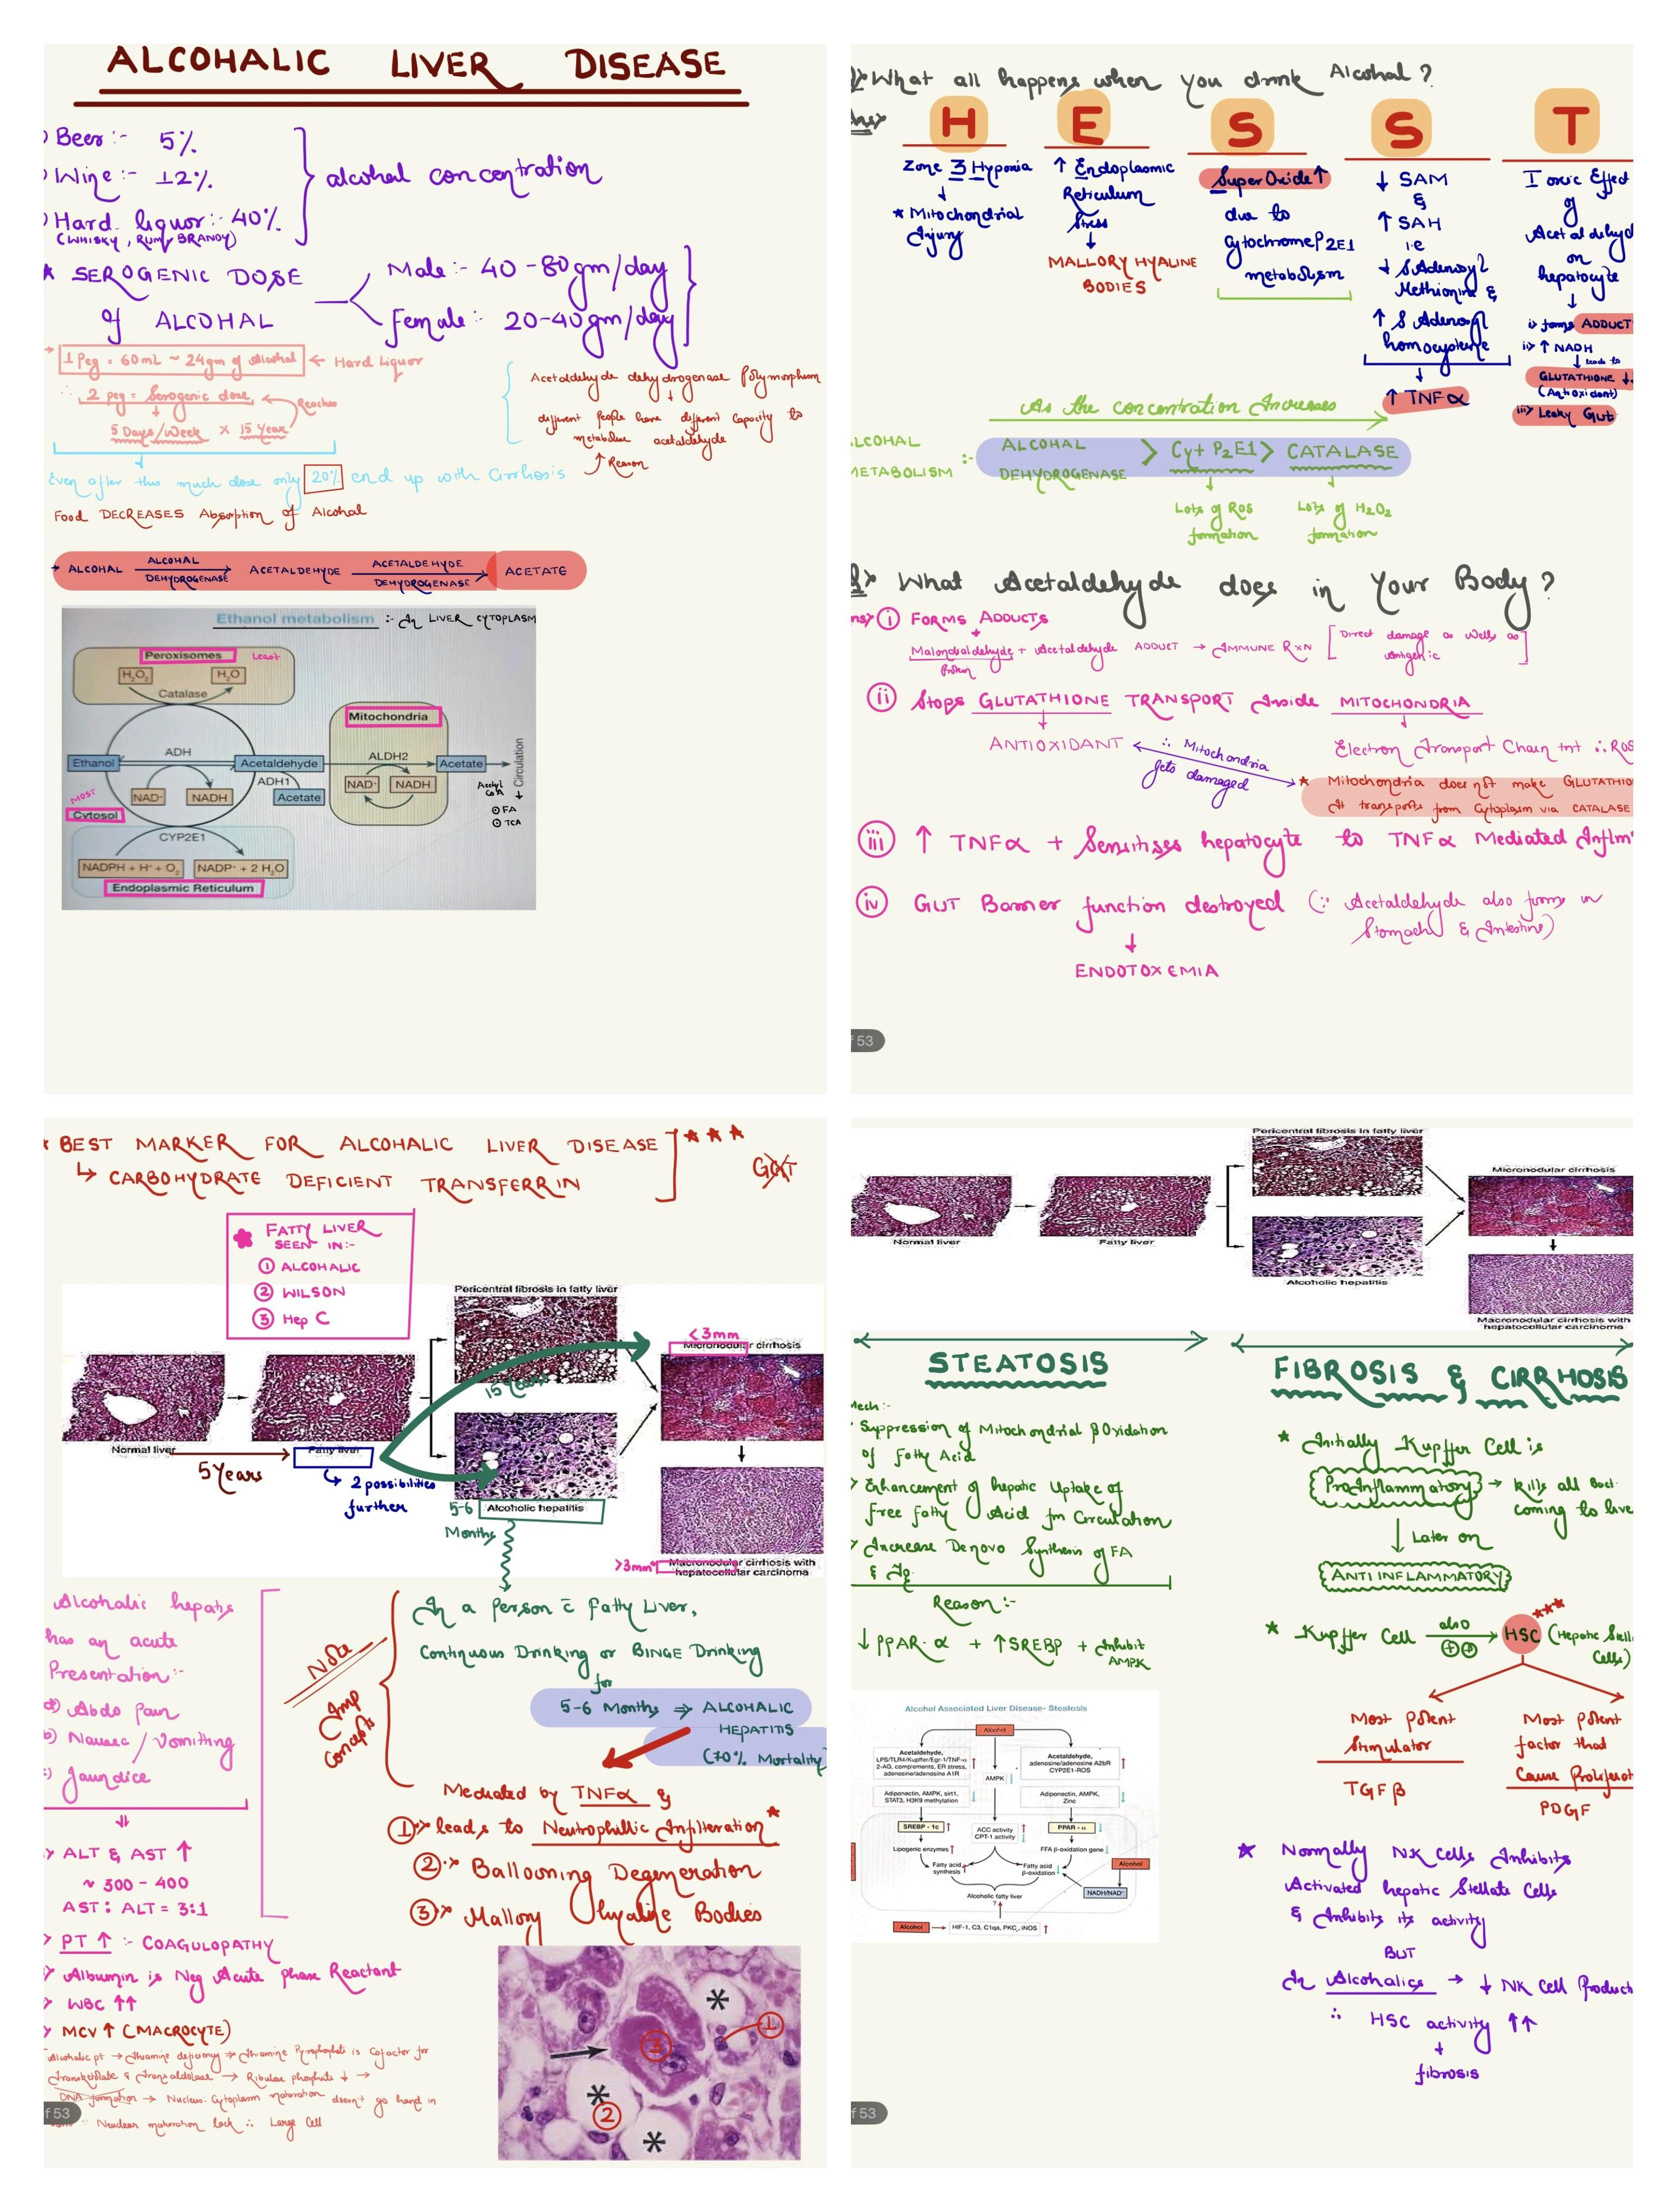 ALCOHALIC LIVER DISEASE
Beer :- 5%
Wine :- 12%
Hard liquor :- 40%
(WHISKY, RUM, BRANDY)
alcohal concentration
SEROGENIC DOSE
of ALCOHAL
Male :- 40-80gm/day
Female :- 20-40gm/day
1 Peg = 60mL ~ 24gm of Alcohal ← Hard Liquor
∴ 2 peg = Serogenic dose
Reaches
5 Days/Week × 15 Year
Acetaldehyde dehydrogenase Polymorphism
different People have different Capacity to
metabolise acetaldehyde
↑ Reason
Even after this much dose only 20% end up with Cirrhosis
Food DECREASES Absorption of Alcohal
ALCOHAL ALCOHAL DEHYDROGENASE ACETALDEHYDE ACETALDEHYDE DEHYDROGENASE ACETATE
Ethanol metabolism :- In LIVER CYTOPLASM
Peroxisomes Least
H₂O₂ H₂O
Catalase
Mitochondria
ADH
ALDH2
Ethanol Acetaldehyde Acetate
Circulation
ADH1
NAD⁺ NADH Acetate
NAD⁺ NADH
Acetyl CoA
FA
TCA
MOST
Cytosol
CYP2E1
NADPH + H⁺ + O₂ NADP⁺ + 2 H₂O
Endoplasmic Reticulum
What all happens when you drink Alcohal?
H E S S T
Zone 3 Hypoxia
↓
* Mitochondrial
Injury
↑ Endoplasmic
Reticulum
Stress
↓
MALLORY HYALINE
BODIES
SuperOxide ↑
due to
CytochromeP2E1
metabolism
↓ SAM
&
↑ SAH
i.e
↓ S Adenosyl
Methionine &
↑ S Adenosyl
homocysteine
↓
↑ TNF α
Toxic Effect
of
Acetaldehyd
on
hepatocyte
↓
i> forms ADDUCT
ii> ↑ NADH
↓ leads to
GLUTATHIONE ↓
(Antioxidant)
iii> Leaky Gut
As the concentration Increases
LCOHAL
METABOLISM :-
ALCOHAL
DEHYDROGENASE > Cyt P2E1 > CATALASE
Lots of ROS
formation
Lots of H₂O₂
formation
What Acetaldehyde does in Your Body?
i FORMS ADDUCTS
Malondialdehyde + Acetaldehyde ADDUCT → IMMUNE RXN [Direct damage as Wells as
Protein
Antigenic]
ii Stops GLUTATHIONE TRANSPORT Inside MITOCHONDRIA
ANTIOXIDANT
∴ Mitochondria
gets damaged
Electron Transport Chain ∴ ROS
* Mitochondria does not make GLUTATHIO
It transports from Cytoplasm via CATALASE
iii ↑ TNFα + Sensitises hepatocyte to TNFα Mediated Inflm
iv GUT Barrier function destroyed (∵ Acetaldehyde also forms in
Stomach & Intestine)
↓
ENDOTOXEMIA
f 53
BEST MARKER FOR ALCOHALIC LIVER DISEASE
↳ CARBOHYDRATE DEFICIENT TRANSFERRIN
FATTY LIVER
SEEN IN:-
① ALCOHALIC
② WILSON
③ Hep C
Pericentral fibrosis in fatty liver
<3mm
Micronodular cirrhosis
15 Years
Normal liver
5 Years
Fatty liver
↳ 2 possibilities
further
5-6
Months
Alcoholic hepatitis
>3mm
Macronodular cirrhosis with
hepatocellular carcinoma
Alcohalic hepatis
has an acute
Presentation:-
a) Abdo Pain
b) Nausec/Vomitting
c) Jaundice
⇓
ALT & AST ↑
~ 300-400
AST: ALT = 3:1
PT ↑ :- COAGULOPATHY
Albumin is Neg Acute phase Reactant
WBC ↑↑
MCV ↑ (MACROCYTE)
Alcoholic pt → Thiamine deficiency → Thiamine Pyrophosphate is Cofactor for
Transketolase & Transaldolase → Ribulose phosphate ↓ →
DNA formation → Nucleus: Cytoplasm maturation doesn't go hand in
Nuclear maturation lack ∴ Large Cell
f 53
Note
Imp
Concept
In a Person c̄ Fatty Liver,
Continuous Drinking or BINGE Drinking
for
5-6 Months ⇒ ALCOHALIC
HEPATITIS
(70% Mortality
Mediated by TNFα &
① leads to Neutrophillic Infilteration *
② Ballooning Degeneration
③ Mallory hyaline Bodies
* ① ③ * ② *
Pericentral fibrosis in fatty liver
Micronodular cirrhosis
Normal liver
Fatty liver
Alcoholic hepatitis
Macronodular cirrhosis with
hepatocellular carcinoma
STEATOSIS
Mech:-
Suppression of Mitochondrial β Oxidation
of Fatty Acid
Enhancement of hepatic Uptake of
Free Fatty Acid fm Circulation
Increase Denovo Synthesis of FA
& Tg
Reason:-
↓ PPAR-α + ↑ SREBP + Inhibit
AMPK
Alcohol Associated Liver Disease- Steatosis
Alcohol
Acetaldehyde,
LPS/TLR4/Kupffer/Egr-1/TNF-α
2-AG, complements, ER stress,
adenosine/adenosine A1R
AMPK
Acetaldehyde,
adenosine/adenosine A2bR
CYP2E1-ROS
Adiponectin, AMPK, sirt1,
STAT3, H3K9 methylation
Adiponectin, AMPK,
Zinc
SREBP - 1c
ACC activity
CPT-1 activity
PPAR - α
Lipogenic enzymes
FFA β-oxidation gene
Fatty acid
synthesis
Fatty acid
β-oxidation
Alcohol
NADH/NAD⁺
Alcoholic fatty liver
?
Alcohol HIF-1, C3, C1qa, PKC, iNOS
FIBROSIS & CIRRHOSIS
* Initially Kupffer Cell is
ProInflammatory → kills all Bact
coming to live
↓ Later on
ANTI INFLAMMATORY
* Kupffer Cell also → HSC (Hepatic Stell
Cells)
Most Potent
Stimulator
TGF β
Most Potent
factor that
Cause Proliferat
PDGF
* Normally NK Cells Inhibits
Activated hepatic Stellate Cells
& Inhibits its activity
BUT
In Alcoholics → ↓ NK Cell Product
∴ HSC activity ↑↑
↓
fibrosis
f 53